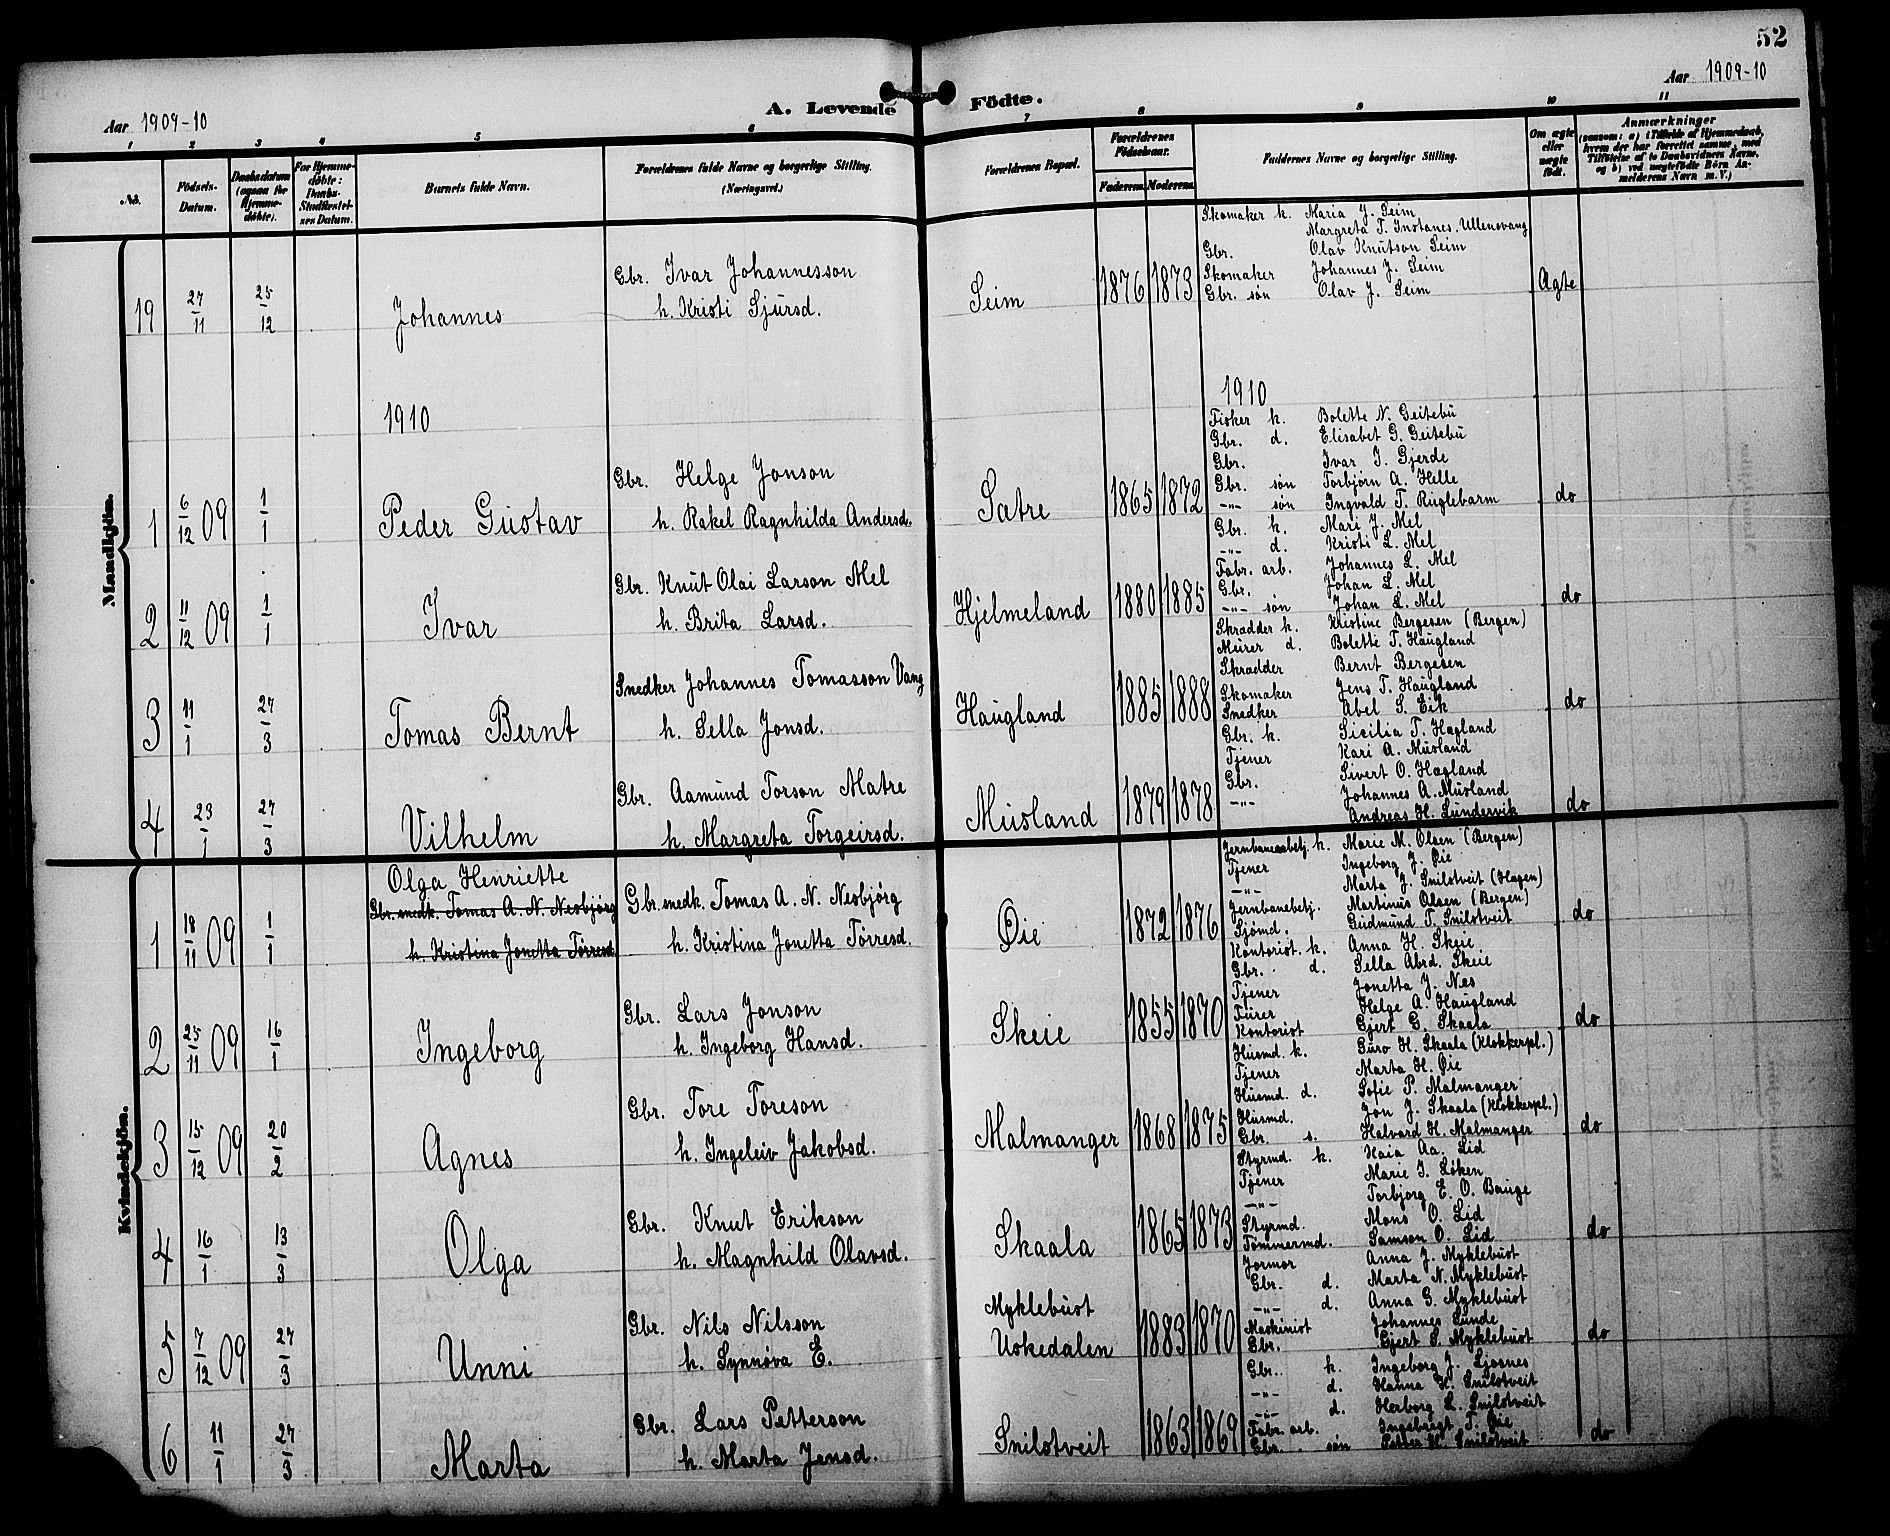 52
Aar 1909-10
A. Levende Födte.
Aar 1909-10
1 2 3 4 5 6 7 8 9 10 11
No.
Födsels-Datum.
Daabsdatum (ogsaa for Hjemme-döbte).
For Hjemme-döbte: Daabs-Stadfæstel-ses Datum.
Barnets fulde Navn.
Forældrenes fulde Navne og borgerlige Stilling. (Næringsvei.)
Forældrenes Bopæl.
Forældrenes Födselsaar.
Faderens. Moderens.
Faddernes Navne og borgerlige Stilling.
Om ægte eller uægte födt.
Anmærkninger
(saasom: a) i Tilfælde af Hjemmedaab, hvem der har forrettet samme, med Tilföielse af to Daabsvidners Navne, og b) ved uægtefödte Börn Anmelderens Navn m. V.)
Mandkjön.
19 27/11 25/12 Johannes
Gbr. Ivar Johannesson
h. Kristi Sjursd.
Seim 1876 1873
Skomaker k. Maria J. Seim
Margreta T. Instanes, Ullensvang
Gbr. Olav Knutson Seim
Skomaker Johannes J. Seim
Gbr. søn Olav J. Seim
Agte
1910
1910
1 6/12 09 1/1 Peder Gustav
Gbr. Helge Jonson
h. Rakel Ragnhilda Andersd.
Satre 1865 1872
Fisker k. Bolette N. Geitebu
Gbr. d. Elisabet G. Geitebu
Gbr. Ivar J. Gjerde
Gbr. søn Torbjørn A. Helle
-"- søn Ingvald T. Ruglebarm
do
2 11/12 09 1/1 Ivar
Gbr. Knut Olai Larson Mel
h. Brita Larsd.
Hjelmeland 1880 1885
Gbr. k. Mari J. Mel
-"- d. Kristi L. Mel
Fabr. arb. Johannes L. Mel
Gbr. Johan L. Mel
-"- søn Johan L. Mel
do
3 11/1 27/3 Tomas Bernt
Snedker Johannes Tomasson Vang
h. Sella Jonsd.
Haugland 1885 1888
Skradder k. Kristine Bergesen (Bergen)
Murer d. Bolette T. Haugland
Skradder Bernt Bergesen
Skomaker Jens T. Haugland
Snedker Abel S. Eik
do
4 23/1 27/3 Vilhelm
Gbr. Aamund Torson Matre
h. Margreta Torgeirsd.
Musland 1879 1878
Gbr. k. Sicilia T. Hagland
Tjener Kari A. Musland
Gbr. Sivert O. Hagland
-"- Johannes A. Musland
Andreas H. Lundervik
do
Kvindekjön.
1 18/11 09 1/1 Olga Henriette
Gbr. smedk. Tomas A. N. Nesbjørg
h. Kristina Jonetta Torresd.
Gbr. smedk. Tomas A. N. Nesbjørg
h. Kristina Jonetta Torresd.
Øie 1872 1876
Jernbanebetj. k. Marie M. Olsen (Bergen)
Tjener Ingeborg J. Øie
-"- Marta J. Snilstveit (Hagen)
Jernbanebetj. Martinus Olsen (Bergen)
Sjømd. Gudmund T. Snilstveit
do
2 25/11 09 16/1 Ingeborg
Gbr. Lars Jonson
h. Ingeborg Hansd.
Skeie 1855 1870
Kontorist. k. Anna H. Skeie
Gbr. d. Sella Abrd. Skeie
Tjener Jonetta J. Nes
Furer Helge A. Haugland
Kontorist Gjert G. Skaala
do
3 15/12 09 20/2 Agnes
Gbr. Tore Toreson
h. Ingeleiv Jakobsd.
Malmanger 1868 1875
Husmd. k. Guro H. Skaala (Klokkerpl.)
Tjener Marta H. Øie
Husmd. d. Sofie P. Malmanger
Husmd. Jon J. Skaala (Klokkerpl.)
Gbr. s. Halvard H. Malmanger
do
4 16/1 13/3 Olga
Gbr. Knut Erikson
h. Magnhild Olavsd.
Skaala 1865 1873
Styrmd. k. Kaia Aa. Lid
Tjener Marie J. Løken
-"- Torbjorg E. O. Bauge
Styrmd. Mons O. Lid
Tømmermd. Samson O. Lid
do
5 7/12 09 27/3 Unni
Gbr. Nils Nilsson
h. Synnøva E.
Myklebust
Uskedalen 1883 1870
Jormor Anna J. Myklebust
Gbr. d. Marta N. Myklebust
-"- d. Anna G. Myklebust
Maskinist Johannes Lunde
Gbr. Gjert S. Myklebust
do
6 11/1 27/3 Marta
Gbr. Lars Petterson
h. Marta Jensd.
Snilstveit 1863 1869
Gbr. k. Ingeborg J. Ljosnes
-"- d. Hanna K. Snilstveit
-"- d. Herborg L. Snilstveit
Fabr. arb. Ingebrigt T. Øie
Gbr. søn Petter H. Snilstveit
do